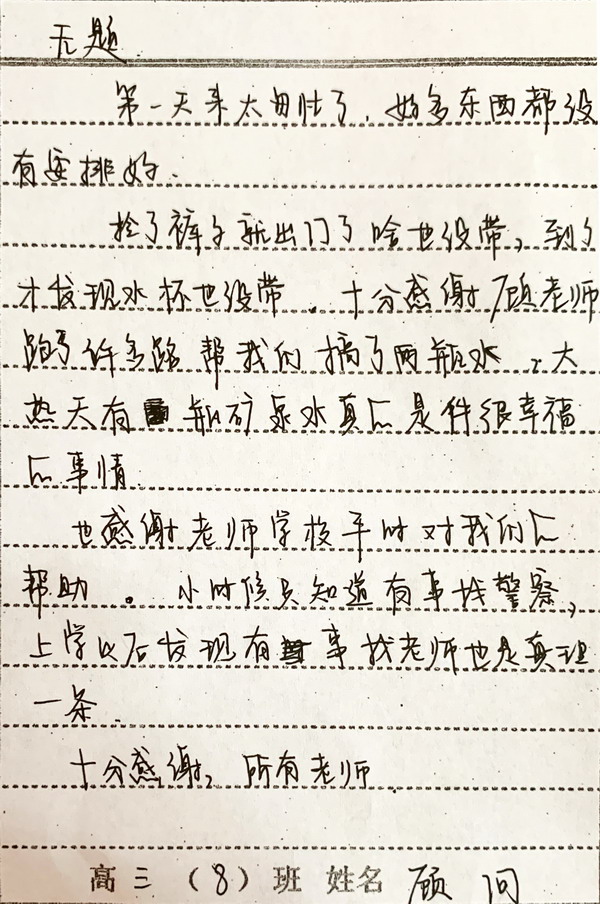 无题
第一天来太匆忙了，好多东西都没
有安排好.
捡了裤子就出门了啥也没带，到了
才发现水杯也没带．十分感谢顾老师
跑了许多路帮我们搞了两瓶水．大
热天有瓶矿泉水真的是件很幸福
的事情
也感谢老师学校平时对我们的
帮助。小时候只知道有事找警察，
上学以后发现有事找老师也是真理
一条.
十分感谢，所有老师
高三（8）班 姓名 顾问